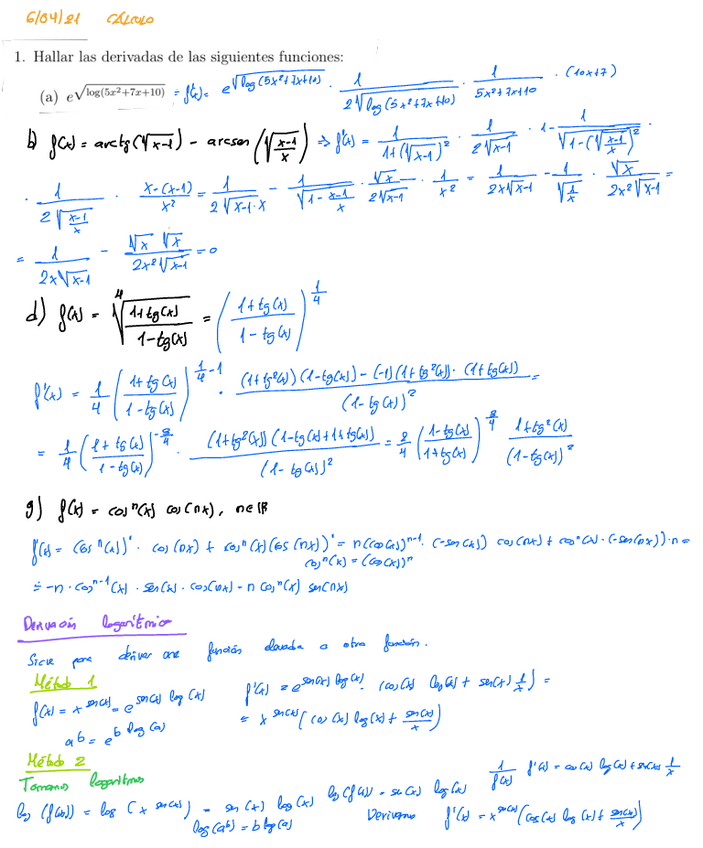 6/04/21 CÁLCULO
1. Hallar las derivadas de las siguientes funciones:
(a) e^√(log(5x²+7x+10)) = f'(x) = e^√(log(5x²+7x+10)) · 1/(2√(log(5x²+7x+10))) · 1/(5x²+7x+10) · (10x+7)
b) f(x) = arctg(√(x-1)) - arcsen(√((x-1)/x)) ⇒ f'(x) = 1/(1+(√(x-1))²) · 1/(2√(x-1)) · 1- 1/√(1-(√((x-1)/x))²) ·
· 1/(2√((x-1)/x)) · (x-(x-1))/x² = 1/(2√(x-1)·x) - 1/√(1-(x-1)/x) · √x/(2√(x-1)) · 1/x² = 1/(2x√(x-1)) - 1/√(1/x) · √x/(2x²√(x-1)) =
= 1/(2x√(x-1)) - (√x √x)/(2x²√(x-1)) = 0
d) f(x) = ⁴√((1+tg(x))/(1-tg(x))) = ((1+tg(x))/(1-tg(x)))^(1/4)
f'(x) = 1/4 ((1+tg(x))/(1-tg(x)))^(1/4-1) · ((1+tg²(x))(1-tg(x)) - (-1)(1+tg²(x))·(1+tg(x)))/(1-tg(x))² =
= 1/4 ((1+tg(x))/(1-tg(x)))^(-3/4) · ((1+tg²(x))(1-tg(x)+1+tg(x)))/(1-tg(x))² = 2/4 ((1-tg(x))/(1+tg(x)))^(3/4) (1+tg²(x))/(1-tg(x))²
g) f(x) = cosⁿ(x) cos(nx), n∈ℝ
f'(x) = (cosⁿ(x))' · cos(nx) + cosⁿ(x)(cos(nx))' = n(cos(x))ⁿ⁻¹ · (-sen(x)) cos(nx) + cosⁿ(x)·(-sen(nx))·n =
cosⁿ(x) = (cos(x))ⁿ
= -n · cosⁿ⁻¹(x) · sen(x) · cos(nx) - n cosⁿ(x) sen(nx)
Derivación logarítmica
Sirve para derivar una función elevada a otra función.
Método 1
f(x) = x^sen(x) = e^(sen(x) log(x)) f'(x) = e^(sen(x) log(x)) · (cos(x) log(x) + sen(x) 1/x) =
a^b = e^(b log(a)) = x^sen(x) (cos(x) log(x) + sen(x)/x)
Método 2
Tomamos logaritmos
log(f(x)) = log(x^sen(x)) = sen(x) log(x) log(f(x)) = sen(x) log(x) 1/f(x) f'(x) = cos(x) log(x) + sen(x) 1/x
log(a^b) = b log(a) Derivamos f'(x) = x^sen(x) (cos(x) log(x) + sen(x)/x)